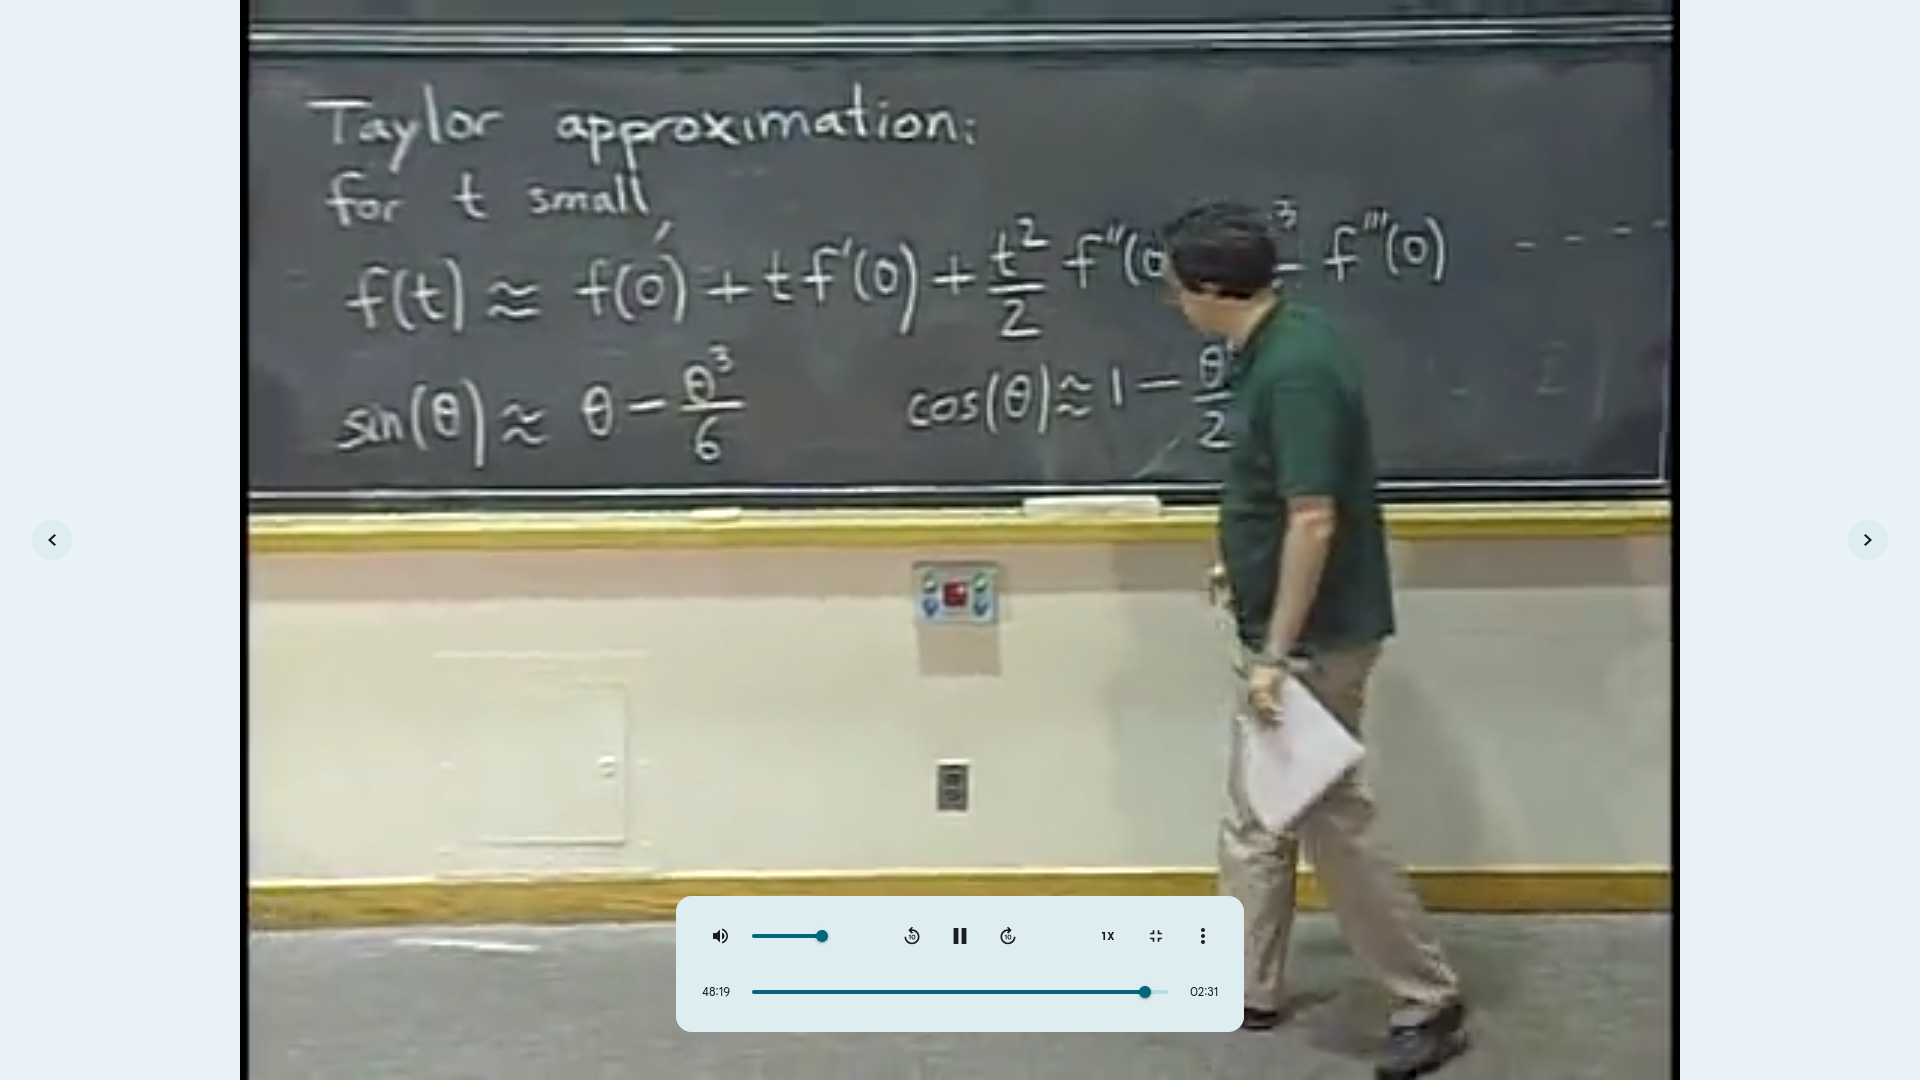 Taylor approximation:
for t small,
f(t) ≈ f(0) + t f'(0) + t²/2 f''(0 3 f'''(0) - - - -
sin(θ) ≈ θ - θ³/6 cos(θ) ≈ 1 - θ/2
10 10 1X
48:19 02:31